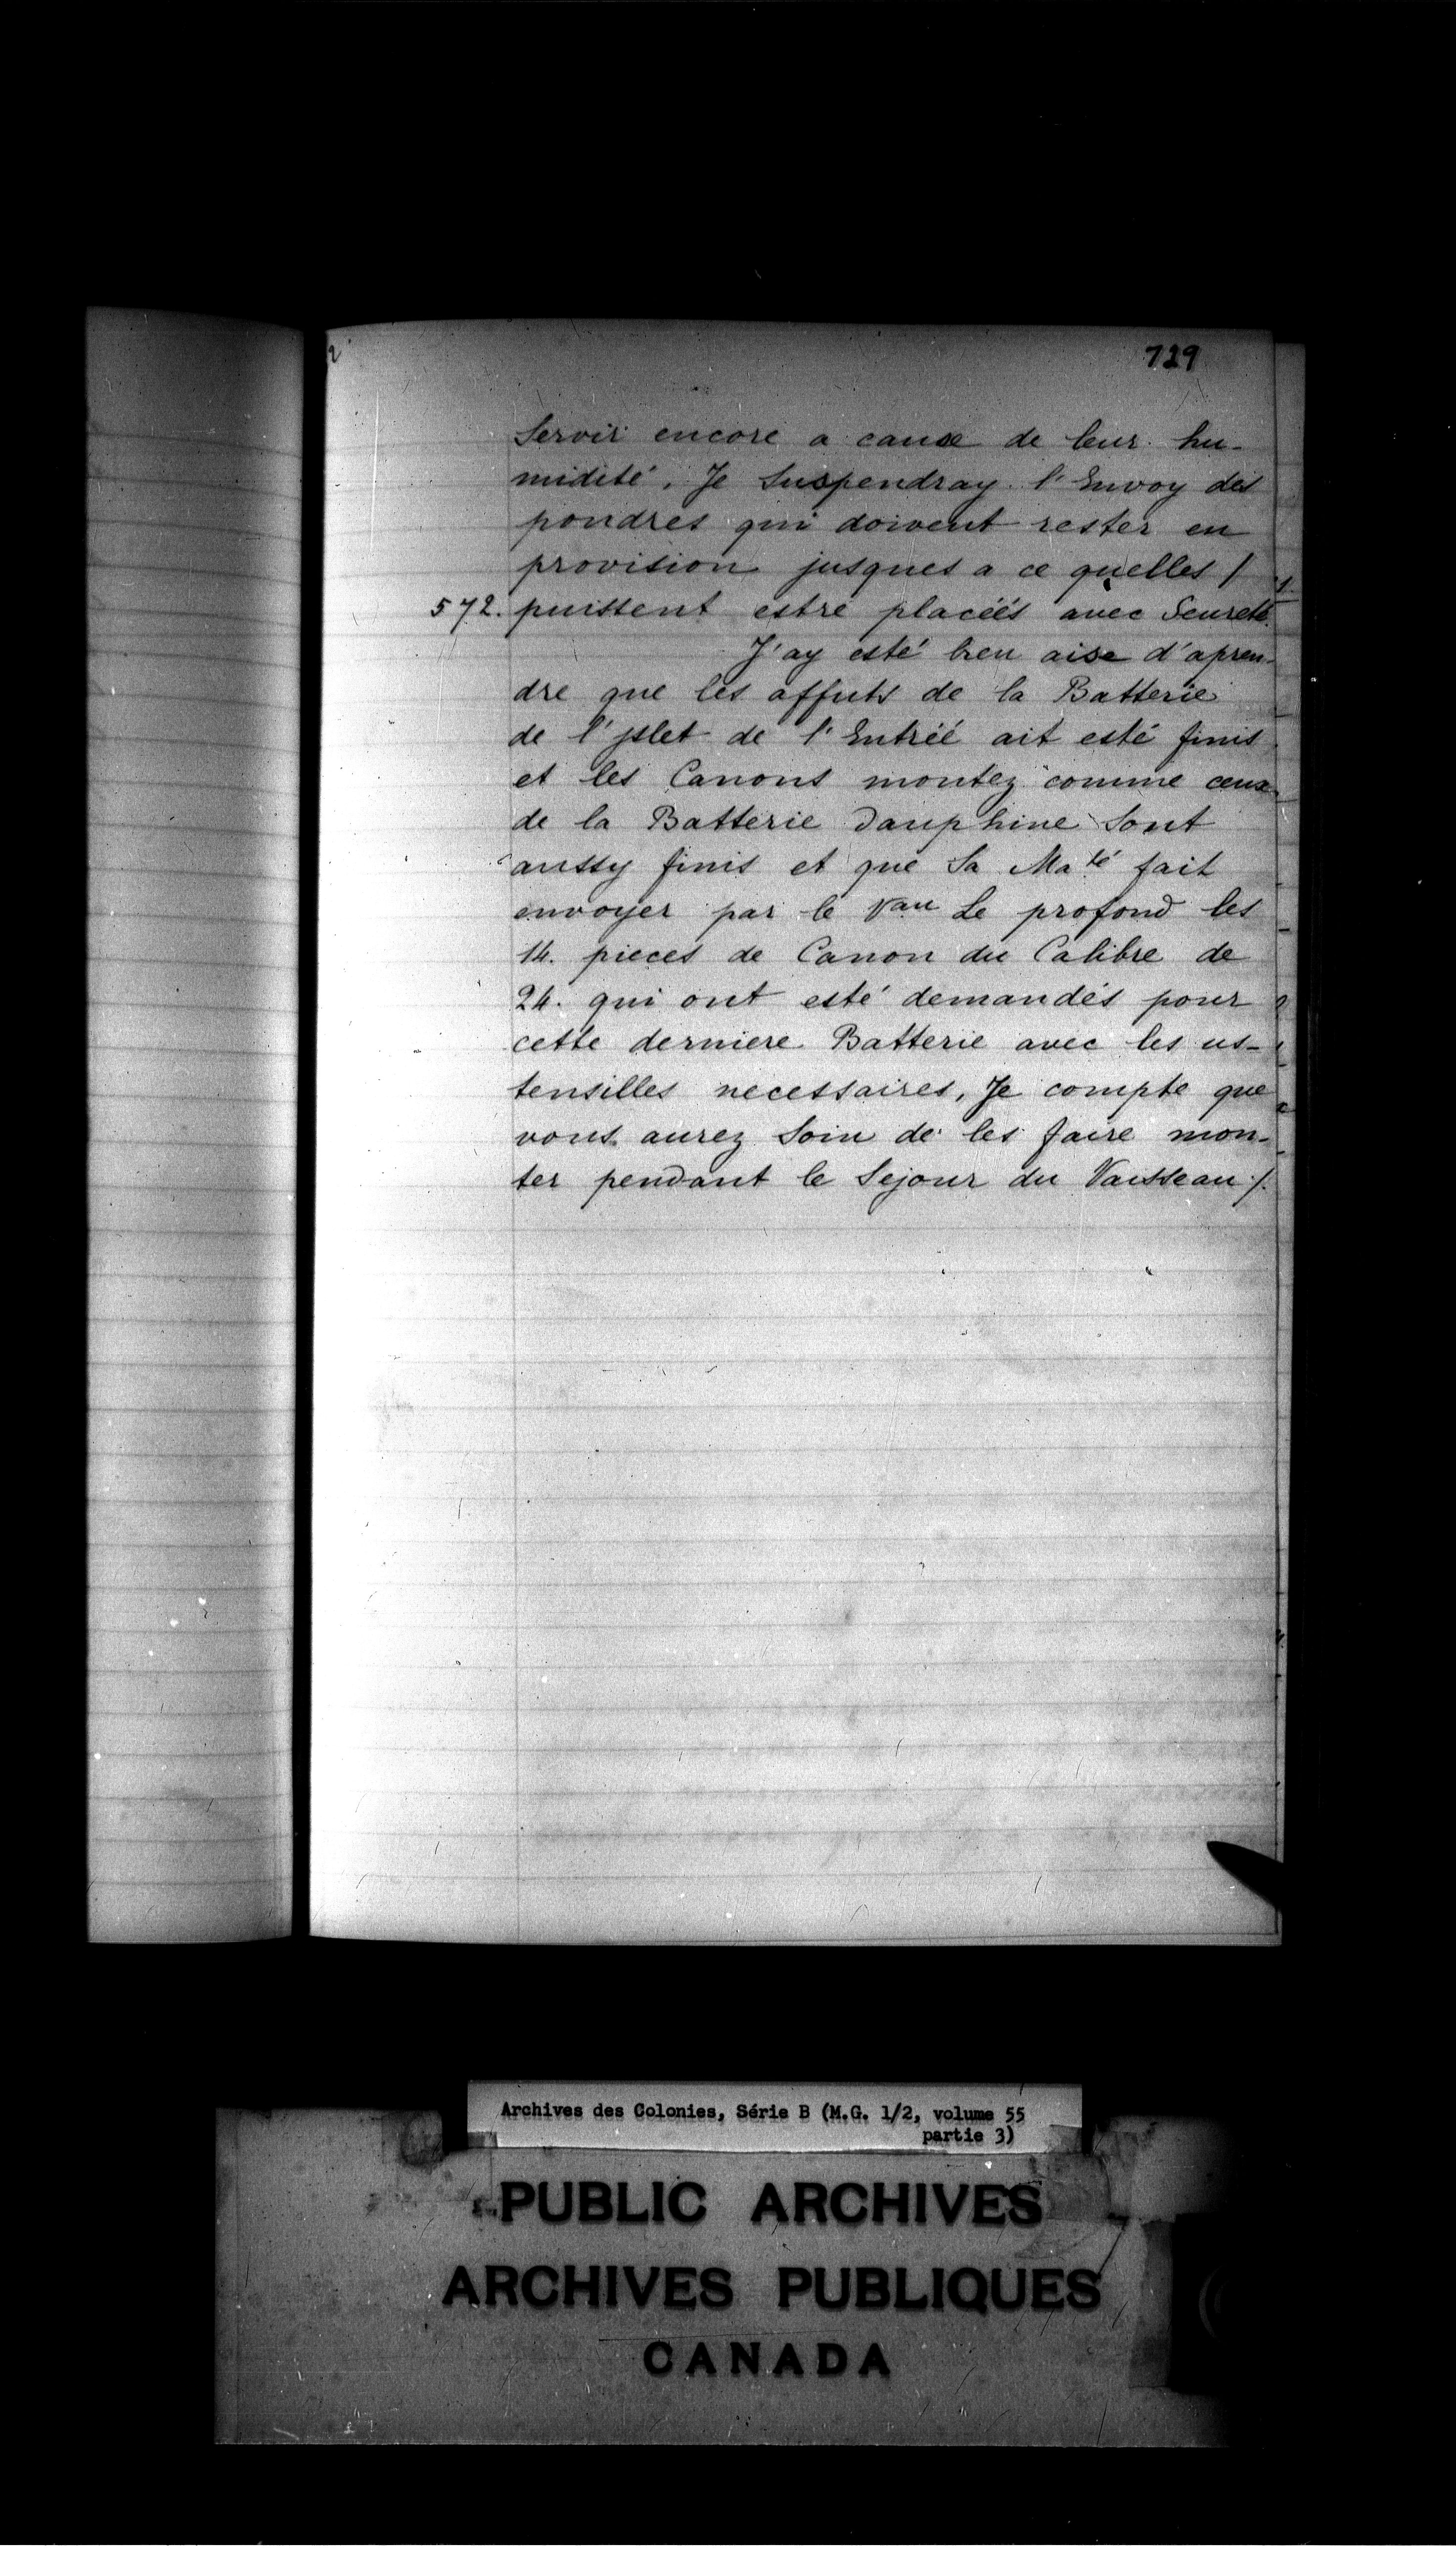 729
Servir encore a cause de leur hu-
midité. Je Suspendray l'Envoy des
poudres qui doivent rester en
provision jusques a ce quelles /
572. puissent estre placéés avec Seureté.
J'ay esté bien aise d'apren-
dre que les affuts de la Batterie
de l'jslet de l'Entréé ait esté finis
et les Canons montez comme ceux
de la Batterie Dauphine Sont
aussy finis et que Sa Maté fait
envoyer par le Vau Le profond les
14. pieces de Canon du Calibre de
24. qui ont esté demandés pour
cette derniere Batterie avec les us-
tensilles necessaires, Je compte que
vous aurez Soin de les faire mon-
ter pendant le Sejour du Vaisseau /.
Archives des Colonies, Série B (M.G. 1/2, volume 55
partie 3)
PUBLIC ARCHIVES
ARCHIVES PUBLIQUES
CANADA